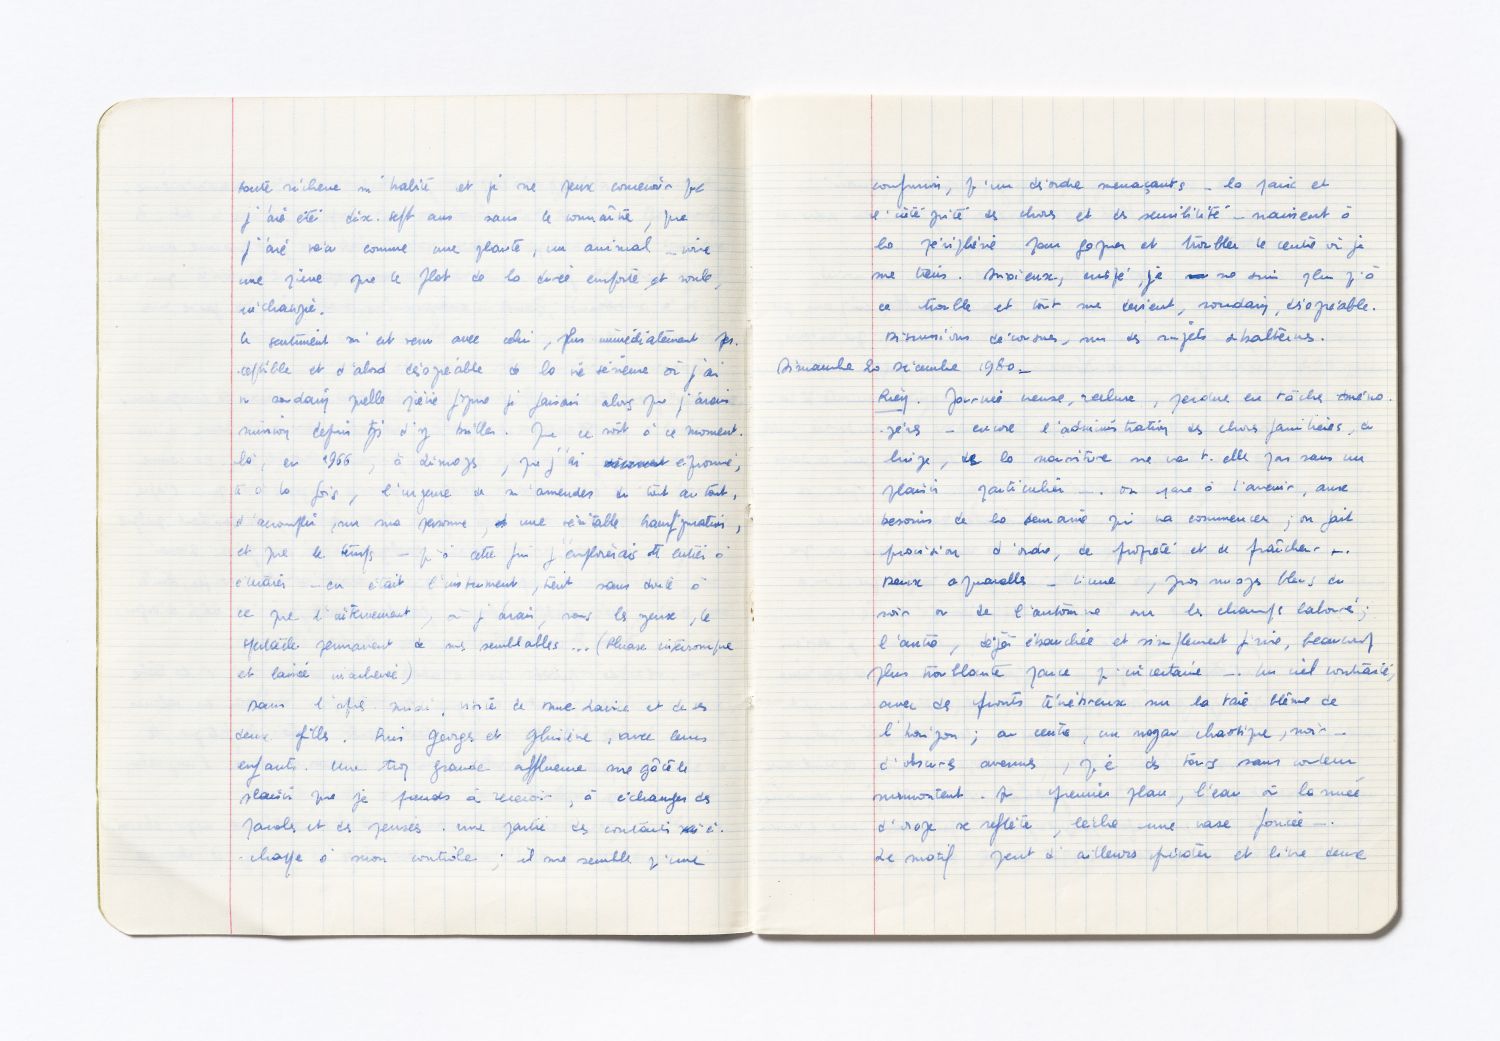 m'habite et je ne peux concevoir que
j'aie été dix-sept ans sans le connaître, que
j'aie vécu comme une plante, un animal – voire
une pierre que le flot de la durée emporte et roule,
inchangée.
Le sentiment m'est venu avec celui, plus immédiatement per-
-ceptible et d'abord désagréable de la vie sérieuse où j'ai
vu soudain quelle piètre figure je faisais alors que j'avais
mission depuis tjs d'y briller. Que ce soit à ce moment-
là, en 1966, à Limoges, que j'ai éprouvé,
et à la fois, l'urgence de m'amender du tout au tout,
d'accomplir, sur ma personne, une véritable transfiguration,
et que le temps – qu'à cette fin j'emploierais tt entier à
– en était l'instrument, tient sans doute à
ce que l'internement, où j'avais, sous les yeux, le
spectacle permanent de mes semblables ... (Phrase interrompue
et laissée inachevée)
Dans l'après-midi, visite de Mme et de ses
deux filles. Puis Georges et Ghislène, avec leurs
enfants. Une trop grande affluence me gâte le
plaisir que je prends à recevoir, à échanger des
paroles et des pensées. Une partie des contenus é-
-chappe à mon contrôle ; il me semble qu'une
confusion, qu'un désordre menaçants – la paix et
l'intégrité des choses et des sensibilités – naissent à
la périphérie pour gagner et troubler le centre où je
me tiens. Anxieux, crispé, je ne suis plus qu'à
ce trouble et tout me devient, soudain, désagréable.
Discussions décousues, sur des sujets subalternes.
Dimanche 20 Décembre 1980 –
Rien. Journée creuse, recluse, perdue en tâches ména-
-gères – encore l'administration des choses familières, du
linge, de la nourriture ne va-t-elle pas sans un
plaisir particulier –. On pare à l'avenir, aux
besoins de la semaine qui va commencer ; on fait
provision d'ordre, de propreté et de fraîcheur –.
Deux aquarelles – L'une, gros nuages bleus du
soir ou de l'automne sur les champs labourés ;
l'autre, déjà ébauchée et simplement grise, beaucoup
plus troublante parce qu'incertaine –. Un ciel contrasté,
avec des fronts ténébreux sur la raie blême de
l'horizon ; au centre, un noyau chaotique, noir –
d'obscures avenues, que des tours sans couleur
surmontent. Au premier plan, l'eau où la nuée
d'orage se reflète, lèche une vase foncée –.
Le motif peut d'ailleurs pivoter et livre deux